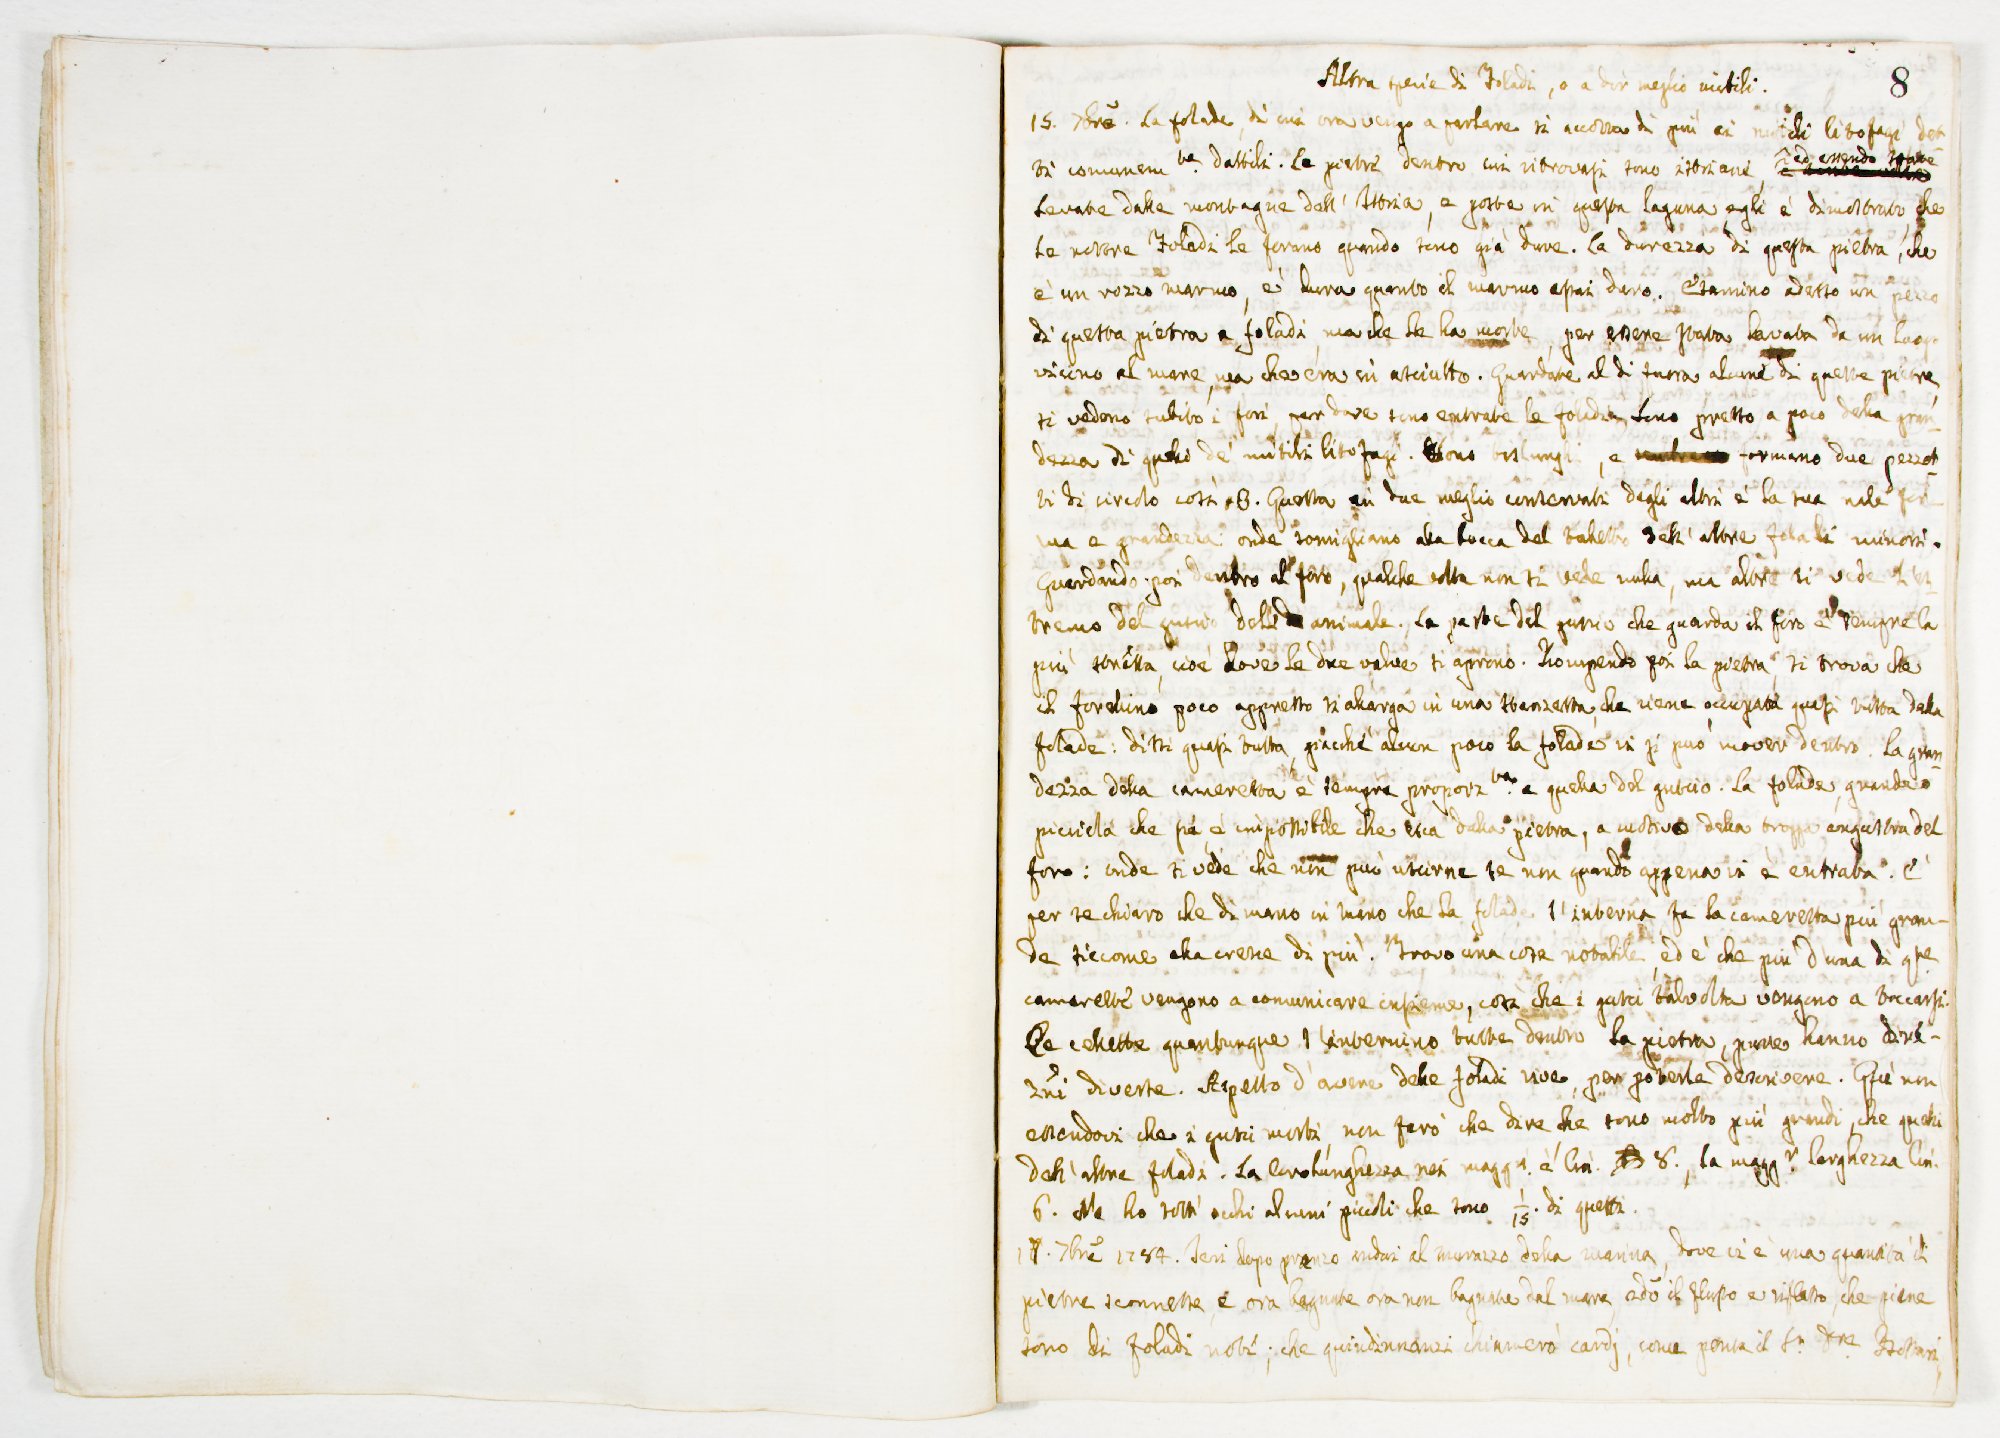 8
Altra specie di Foladi, o a dir meglio mitili.
15. 7bre. La folade, di cui ora vengo a parlare si accosta di più ai mitili litofagi det
ti comunem.te dattili. Le pietre dentro cui ritrovasi sono istriane, ed essendo state
levate dalle montagne dell' Istria, e poste in questa laguna egli è dimostrato, che
le nostre Foladi le forino quando sono già dure. La durezza di questa pietra, che
è un rozzo marmo, è dura quanto il marmo assai duro. Esamino adesso un pezzo
di questa pietra a foladi, ma che le ha morte, per essere stata levata da un luogo
vicino al mare, ma che era in asciutto. Guardate al di fuora alcune di queste pietre,
si vedono subito i fori, per dove sono entrate le foladi. Sono presso a poco della gran-
dezza di quelli de' mitili litofagi. Sono bislunghi, e formano due pezzet
ti di circolo così 8. Questa in due meglio conservati degli altri è la sua nale for
ma e grandezza: onde somigliano alla bocca del tubetto dell' altre foladi minori.
Guardando poi dentro al foro, qualche volta non si vede nulla, ma altre si vede l'es-
tremo del guscio dell' animale. La parte del guscio che guarda il foro è sempre la
più stretta, cioè dove le due valve si aprono. Rompendo poi la pietra, si trova che
il forellino poco appresso si allarga in una stanzetta, che viene occupata quasi tutta dalla
folade: dissi quasi tutta, giacchè alcun poco la folade vi si può mover dentro. La gran-
dezza della cameretta è sempre proporz.te a quella del guscio. La folade, grande o
piccicla che sia, è impossibile che esca dalla pietra, a motivo della troppa angustia del
foro: onde si vede che non può uscirne se non quando appena vi è entrata. È
per se chiaro che di mano in mano che la folade s'interna fa la cameretta più gran-
de siccome ella cresce di più. Trovo una cosa notabile, ed è che più d'una di q.te
camerette vengono a comunicare insieme, così che i gusci talvolta vengono a toccarsi.
Le cellette quantunque s'internino tutte dentro la pietra, pure hanno dire-
zni diverse. Aspetto d'avere delle foladi vive, per poterle descrivere. Quì non
essendovi che i gusci morti, non farò che dire che sono molto più grandi, che quelli
dell' altre foladi. La loro lunghezza nei magg.i è lin. 8., la magg.r larghezza lin.
6. Ne ho sott' occhi alcuni piccoli che sono 1/15. di questi.
17. 7bre 1784. Ieri dopo pranzo andai al murazzo della marina, dove ci è una quantità di
pietre sconnesse, e ora bagnate ora non bagnate dal mare, 2do il flusso e riflusso, che piene
sono di foladi noti; che quindinnanzi chiamerò cardj, come pensa il S.r D.re Bottari,